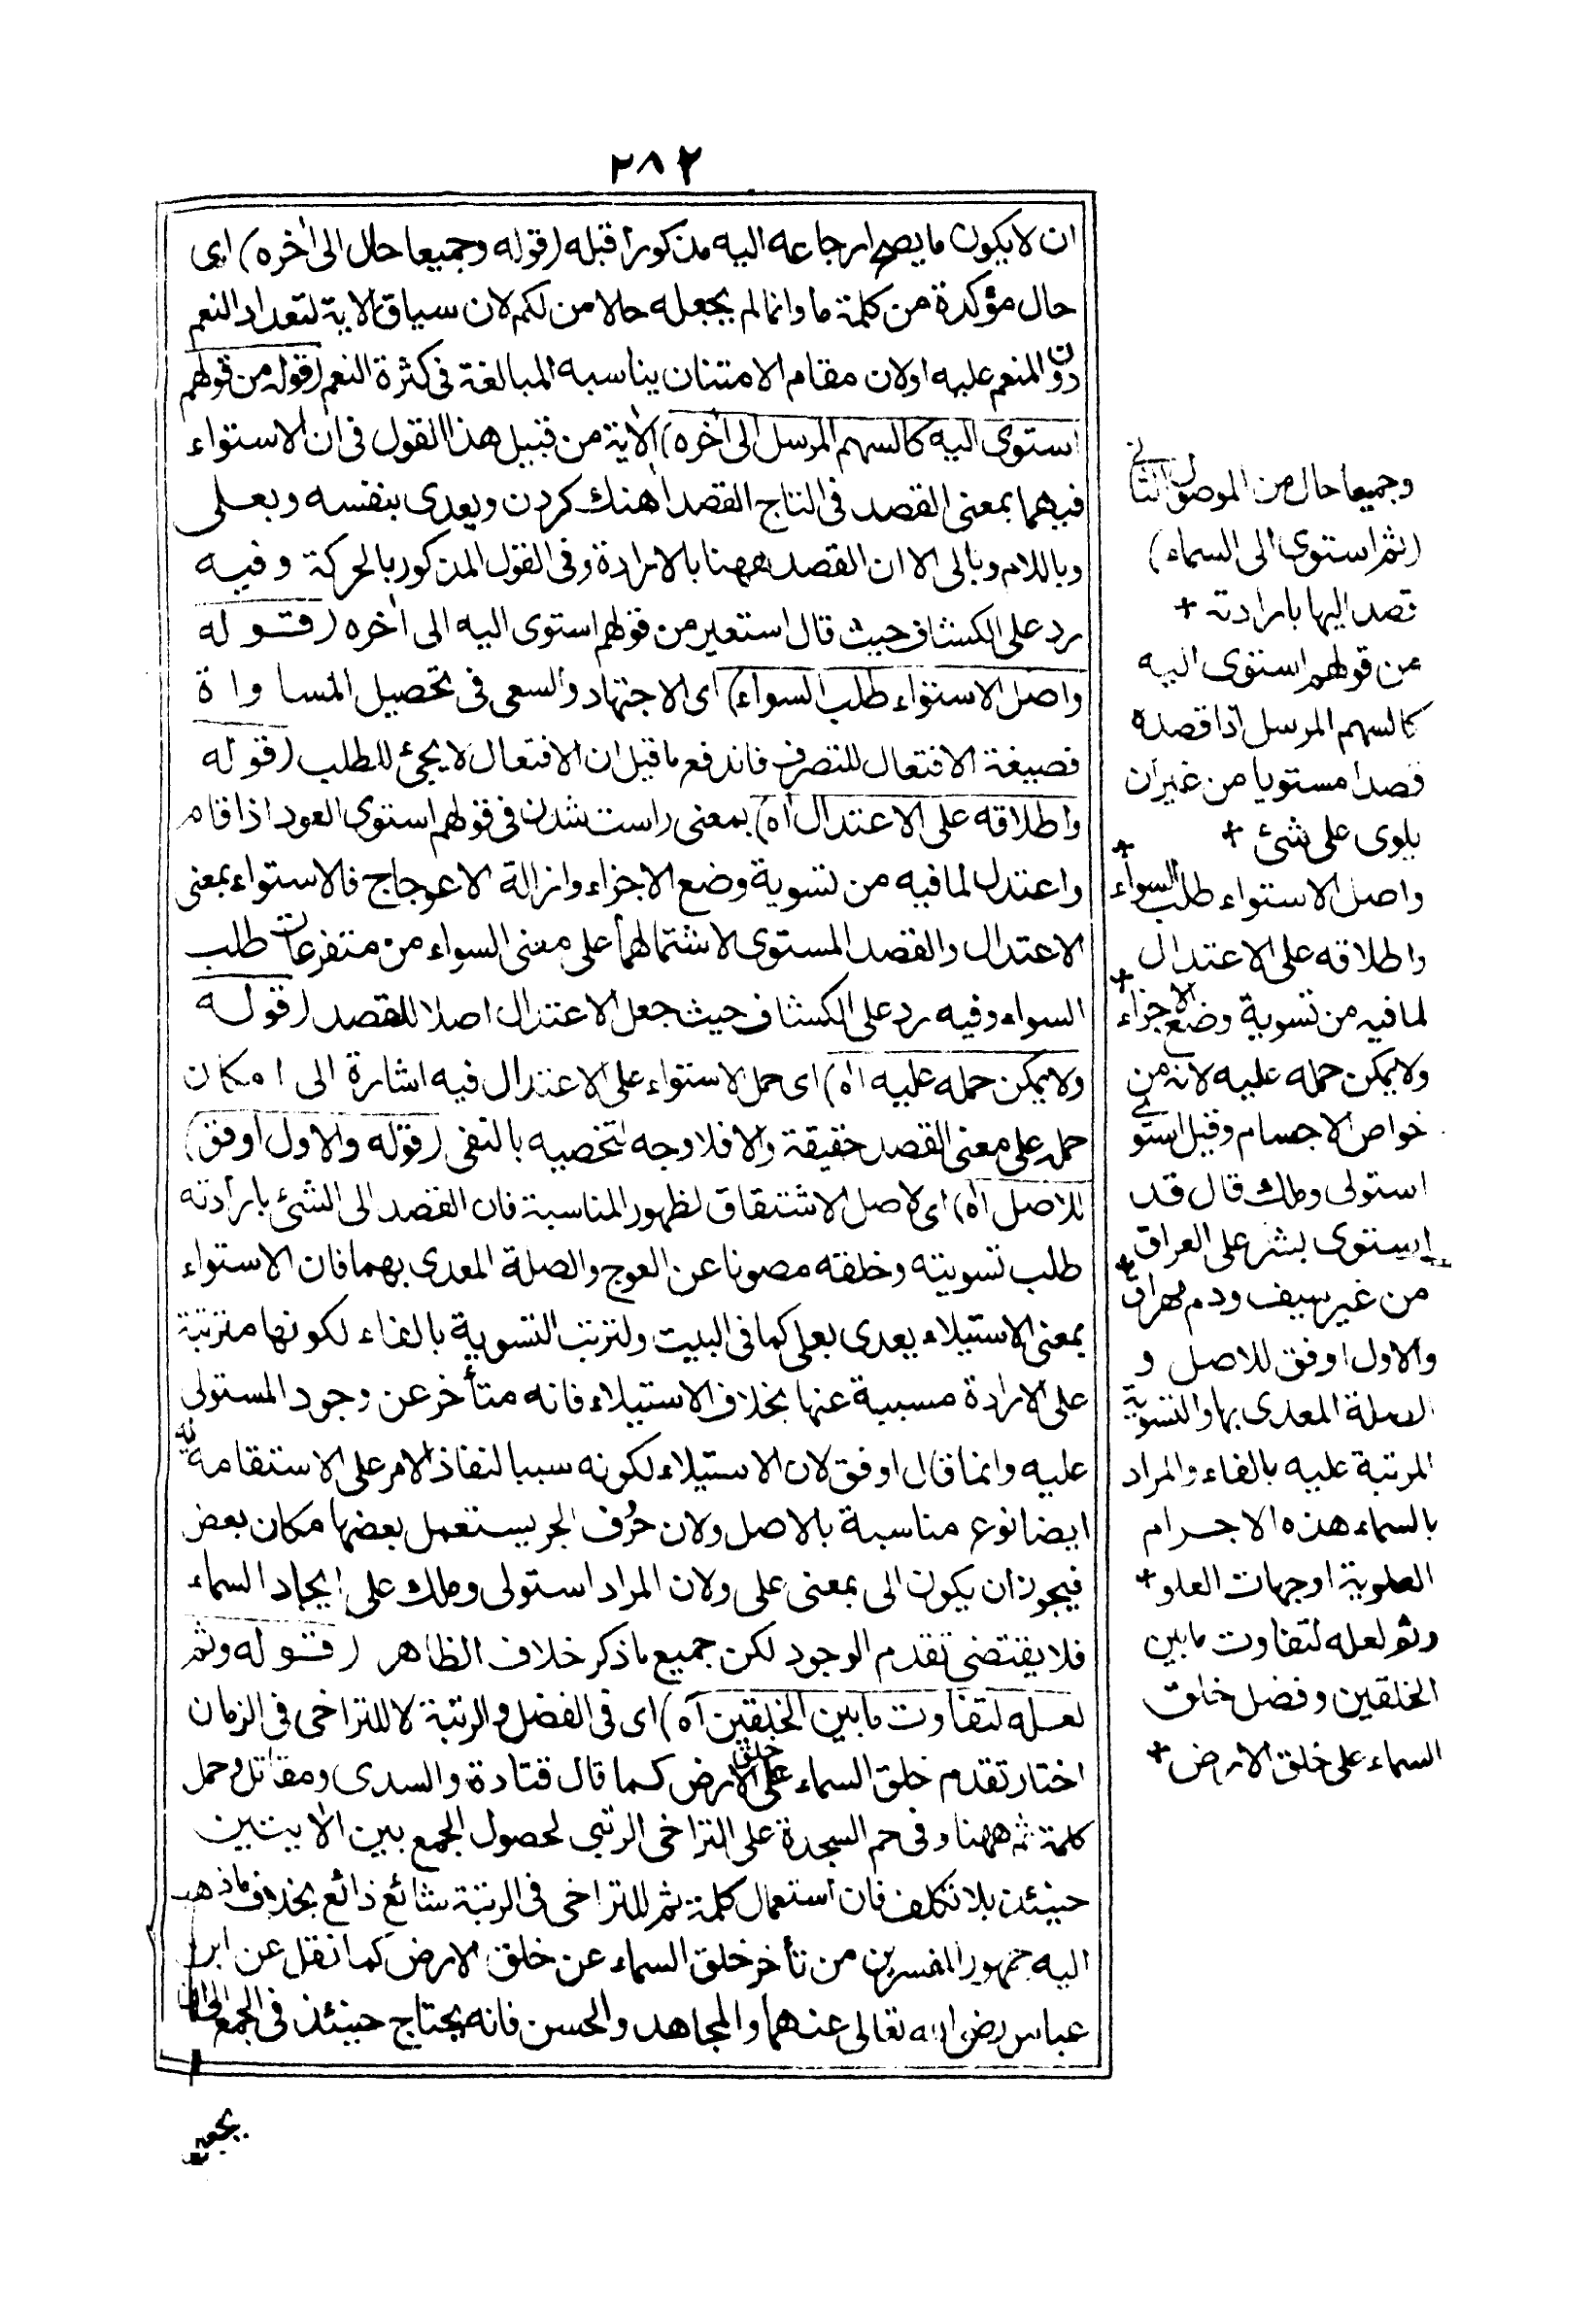 ٢٨٢
ان لا يكون ما يصح ارجاعه اليه مذكورا قبله (قوله وجميعا حال الى آخره) اى
حال مؤكدة من كلمة ما وانما لم يجعله حالا من لكم لان سياق الاية لتعداد النعم
دون المنعم عليه اولان مقام الامتنان يناسبه المبالغة فى كثرة النعم (قوله من قولهم
استوى اليه كالسهم المرسل الى آخره) الاية من قبيل هذا القول فى ان الاستواء
فيهما بمعنى القصد فى التاج القصد آهنك كردن ويعدى بنفسه وبعلى
وباللام وبالى الا ان القصد ههنا بالارادة وفى القول المذكور بالحركة وفيه
رد على الكشاف حيث قال استعير من قولهم استوى اليه الى آخره (قوله
واصل الاستواء طلب السواء) اى الاجتهاد والسعى فى تحصيل المساواة
فصيغة الافتعال للتصرف فاندفع ما قيل ان الافتعال لا يجئ للطلب (قوله
واطلاقه على الاعتدال آه) بمعنى راست شدن فى قولهم استوى العود اذا قام
واعتدل لما فيه من تسوية وضع الاجزاء وازالة الاعوجاج فالاستواء بمعنى
الاعتدال والقصد المستوى لاشتمالهما على معنى السواء من متفرعات طلب
السواء وفيه رد على الكشاف حيث جعل الاعتدال اصلا للقصد (قوله
ولا يمكن حمله عليه آه) اى حمل الاستواء على الاعتدال فيه اشارة الى امكان
حمله على معنى القصد حقيقة والا فلا وجه لتخصيصه بالنفى (قوله والاول اوفق)
للاصل آه) اى لاصل الاشتقاق لظهور المناسبة فان القصد الى الشئ بارادته
طلب تسويته وخلقه مصونا عن العوج والصلة المعدى بهما فان الاستواء
بمعنى الاستيلاء يعدى بعلى كما فى البيت ولترتب التسوية بالفاء لكونها مترتبة
على الارادة مسببة عنها بخلاف الاستيلاء فانه متأخر عن وجود المستولى
عليه وانما قال اوفق لان الاستيلاء لكونه سببا لنفاذ الامر على الاستقامة له
ايضا نوع مناسبة بالاصل ولان حرف الجر يستعمل بعضها مكان بعض
فيجوز ان يكون الى بمعنى على ولان المراد استولى وملك على ايجاد السماء
فلا يقتضى تقدم الوجود لكن جميع ما ذكر خلاف الظاهر (قوله وثم
لعله لتفاوت ما بين الخلقين آه) اى فى الفضل والرتبة لا للتراخى فى الزمان
اختار تقدم خلق السماء على خلق الارض كما قال قتادة والسدى ومقاتل وحمل
كلمة ثم ههنا وفى حم السجدة على التراخى الرتبى لحصول الجمع بين الايتين
حينئذ بلا تكلف فان استعمال كلمة ثم للتراخى فى الرتبة شائع ذائع بخلاف ما ذهب
اليه جمهور المفسرين من تأخر خلق السماء عن خلق الارض كما نقل عن ابن
عباس رضى الله تعالى عنهما والمجاهد والحسن فانه يحتاج حينئذ فى الجمع الى
وجميعا حال من الموصول الثانى
(ثم استوى الى السماء)
قصد اليها بارادته +
من قولهم استوى اليه
كالسهم المرسل اذا قصده
قصدا مستويا من غير ان
يلوى على شئ +
واصل الاستواء طلب السواء +
واطلاقه على الاعتدال
لما فيه من تسوية وضع الاجزاء +
ولا يمكن حمله عليه لانه من
خواص الاجسام وقيل استوى
استولى وملك قال قد
استوى بشر على العراق
من غير سيف ودم مهراق +
والاول اوفق للاصل و
الصلة المعدى بها والتسوية
المرتبة عليه بالفاء والمراد
بالسماء هذه الاجرام
العلوية او جهات العلو +
وثم لعله لتفاوت ما بين
الخلقين وفضل خلق
السماء على خلق الارض +